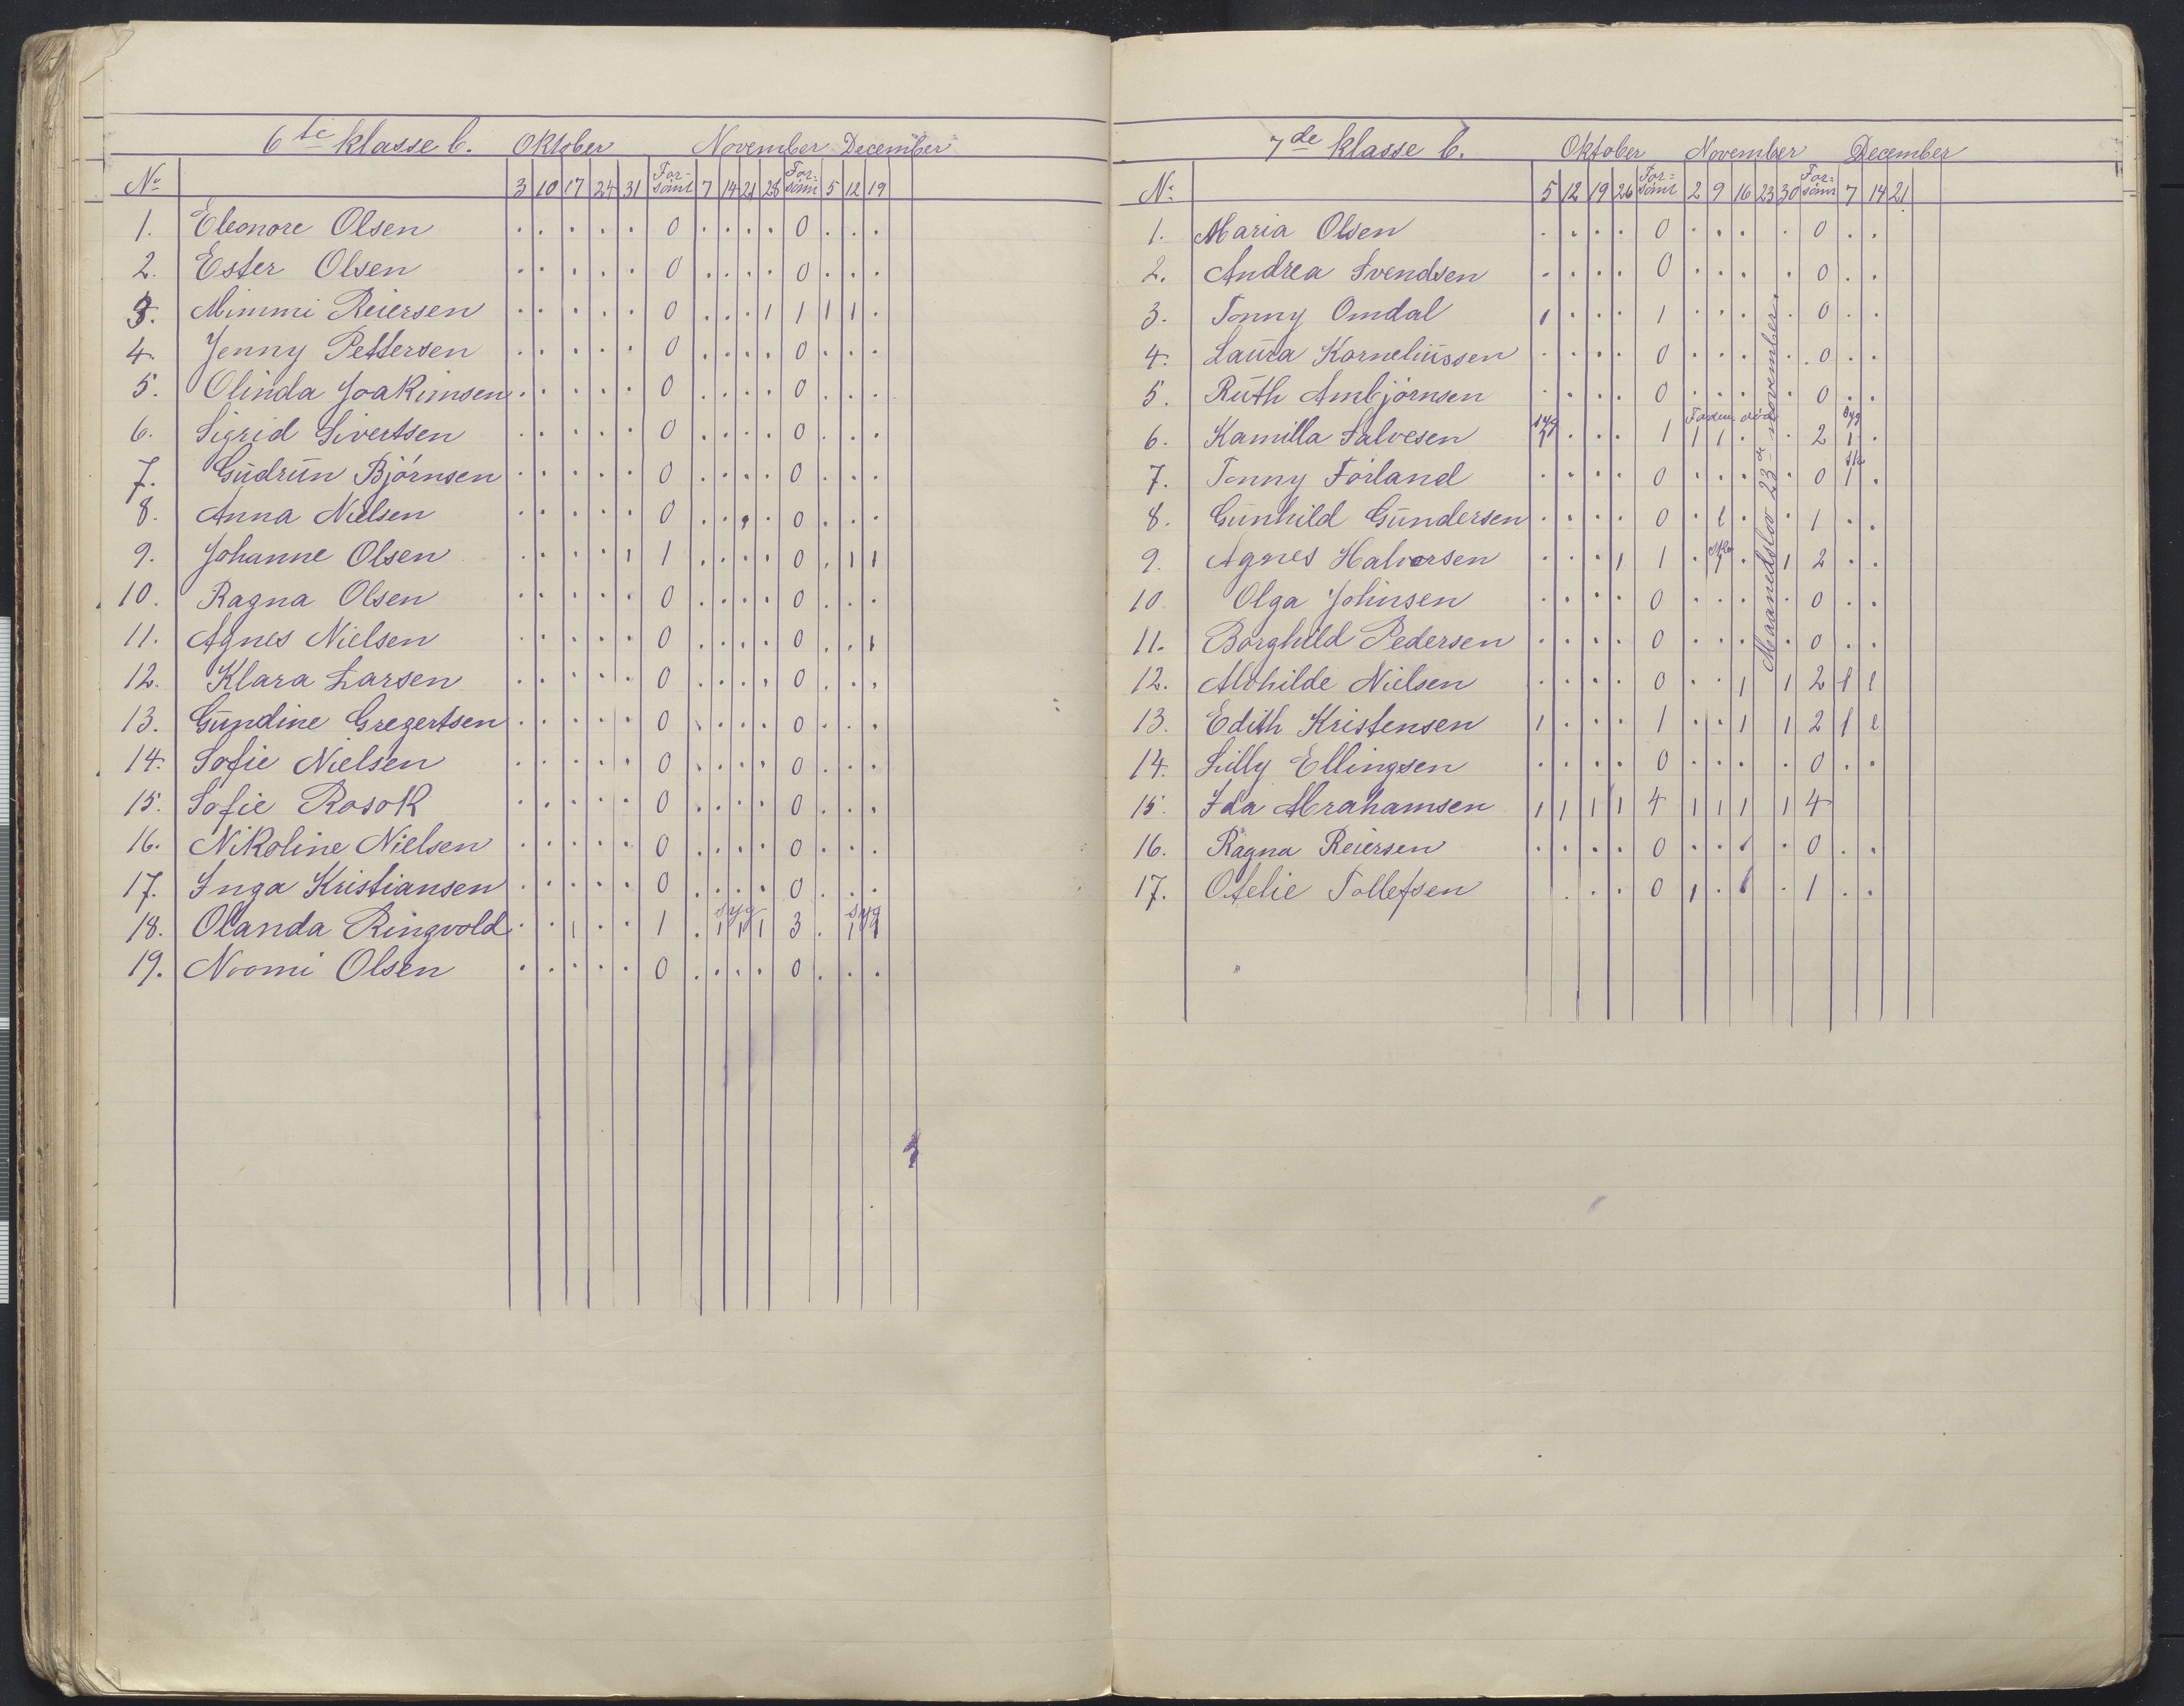 6te klasse b. Oktober November December
No 3 10 17 24 31 For-sömt 7 14 21 28 For-sömt 5 12 19
1. Eleonore Olsen . . . . . 0 . . . . 0 . . .
2. Ester Olsen . . . . . 0 . . . . 0 . . .
3. Mimmi Reiersen . . . . . 0 . . . 1 1 1 1 .
4. Jenny Pettersen . . . . . 0 . . . . 0 . . .
5. Olinda Joakimsen . . . . . 0 . . . . 0 . . .
6. Sigrid Sivertsen . . . . . 0 . . . . 0 . . .
7. Gudrun Björnsen . . . . . 0 . . . . 0 . . .
8. Anna Nielsen . . . . . 0 . . . . 0 . . .
9. Johanne Olsen . . . . 1 1 . . . . 0 . 1 1
10. Ragna Olsen . . . . . 0 . . . . 0 . . .
11. Agnes Nielsen . . . . . 0 . . . . 0 . . 1
12. Klara Larsen . . . . . 0 . . . . 0 . . .
13. Gundine Gregertsen . . . . . 0 . . . . 0 . . .
14. Sofie Nielsen . . . . . 0 . . . . 0 . . .
15. Sofie Rosok . . . . . 0 . . . . 0 . . .
16. Nikoline Nielsen . . . . . 0 . . . . 0 . . .
17. Inga Kristiansen . . . . . 0 . . . . 0 . . .
syg syg
18. Olanda Ringvold . . 1 . . 1 . 1 1 1 3 . 1 1
19. Noomi Olsen . . . . . 0 . . . . 0 . . .
7de klasse b. Oktober November December
No 5 12 19 26 For-sömt 2 9 16 23 30 For-sömt 7 14 21
Maanedslov 23de november.
1. Maria Olsen . . . . 0 . . . . 0 . .
2. Andrea Svendsen . . . . 0 . . . . 0 . .
3. Tonny Omdal 1 . . . 1 . . . . 0 . .
4. Laura Korneliussen . . . . 0 . . . . 0 . .
5. Ruth Ambjörnsen . . . . 0 . . . . 0 . .
syg Faderen död syg
6. Kamilla Salvesen 1 . . . 1 1 1 . . 2 1 .
7. Tonny Förland . . . . 0 . . . . 0 1 .
8. Gunhild Gundersen . . . . 0 . 1 . . 1 . .
9. Agnes Halvorsen . . . 1 1 . 1 . 1 2 . .
10. Olga Johnsen . . . . 0 . . . . 0 . .
11. Borghild Pedersen . . . . 0 . . . . 0 . .
12. Alvhilde Nielsen . . . . 0 . . 1 1 2 1 1
13. Edith Kristensen 1 . . . 1 . . 1 1 2 1 1
14. Lilly Ellingsen . . . . 0 . . . . 0 . .
15. Ida Abrahamsen 1 1 1 1 4 1 1 1 1 4
16. Ragna Reiersen . . . . 0 . . . . 0 . .
17. Ofelie Tollefsen . . . 0 1 . . . 1 . .